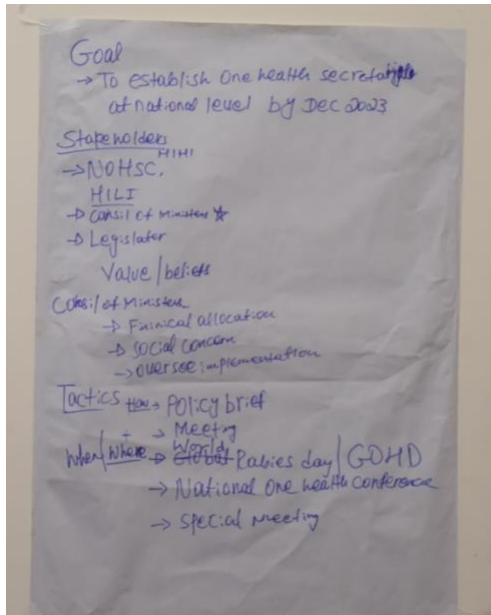 Goal
→ To establish One health secretariate
at national level by Dec 2023
Stakeholders
HIHI
→ NOHSC,
HILI
→ Consil of Ministers ☆
→ Legislater
Value/beliefs
Consil of Ministers
→ Fininical allocation
→ Social concern
→ oversee implementation
Tactics How → Policy brief
→ Meeting
World
When/Where → Global Rabies day/GOHD
→ National One health conference
→ Special Meeting